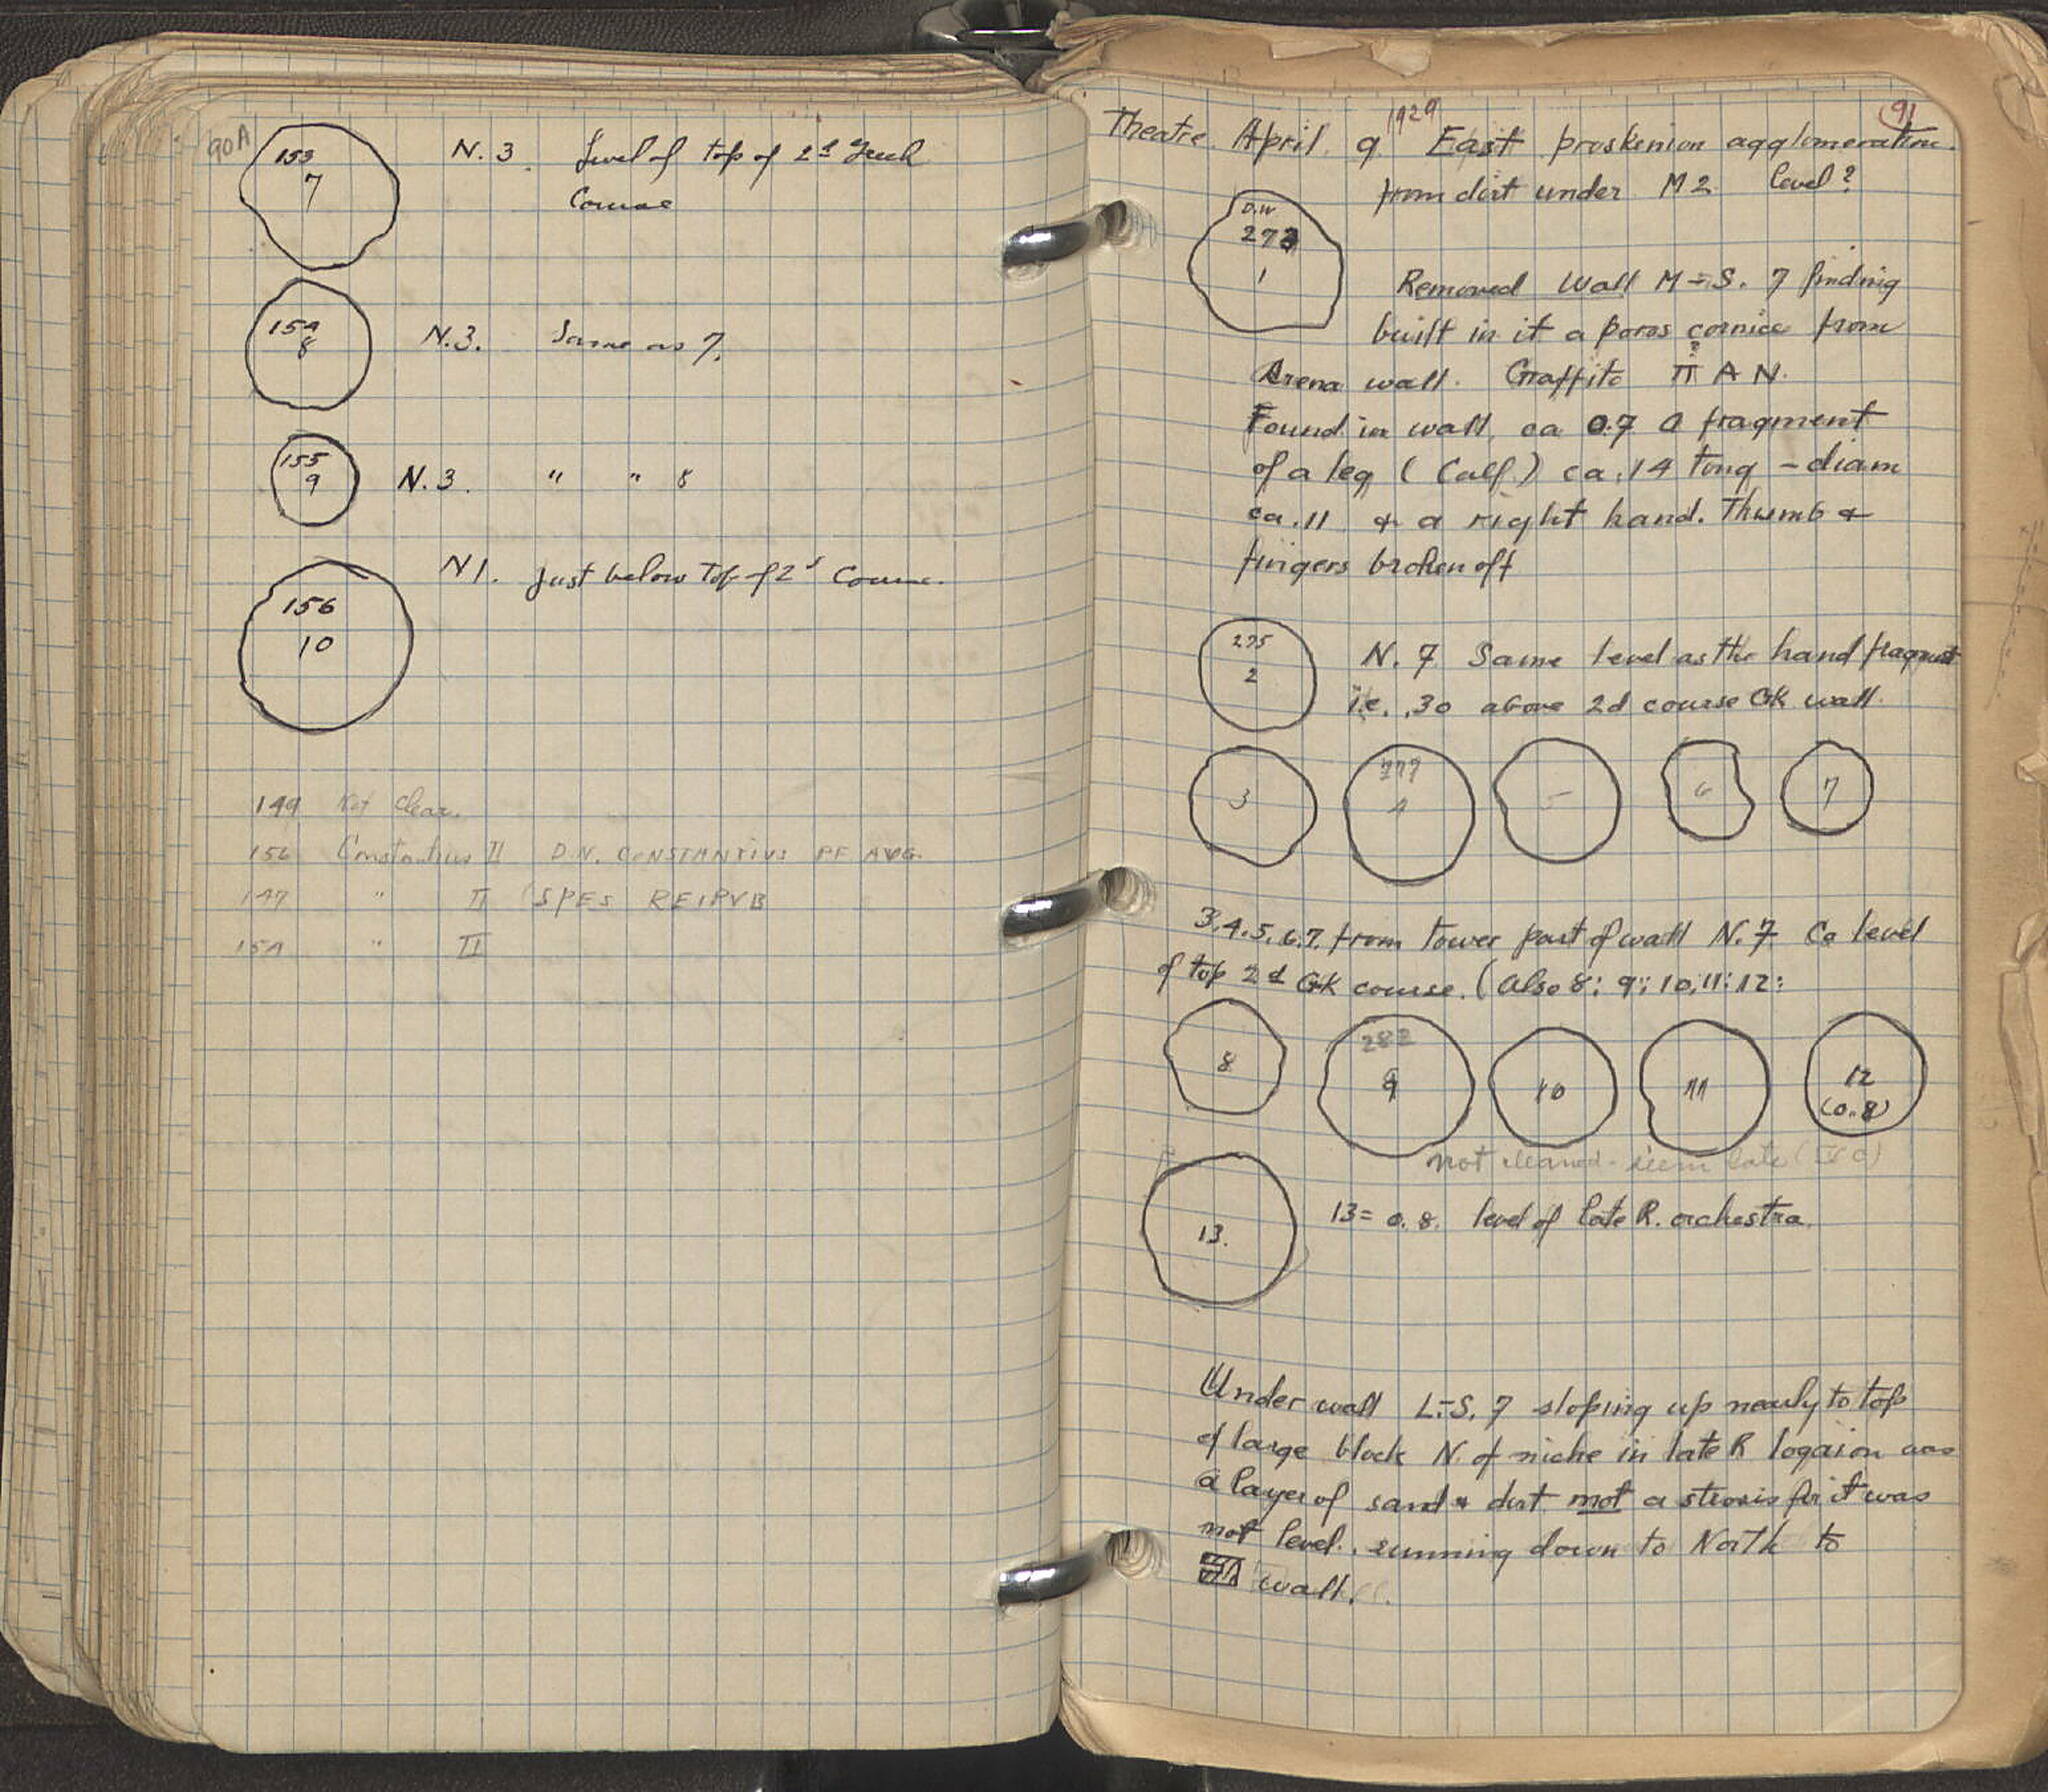 90A
153
7
N. 3. Level of top of 2d Greek
Course
154
8
N. 3. Same as 7.
155
9
N. 3. " " 8
156
10
N 1. Just below top of 2d Course.
149 Not clear.
156 Constantius II D.N. CONSTANTIUS PF AVG.
147 " II SPES REIPVB
154 " II
91
1929
Theatre. April. 9. East proskenion agglomeration.
from dirt under M 2 level?
273
1
Removed Wall M-S. 7 finding
built in it a poros cornice from
Arena wall. Graffito Π? A N.
Found in wall, ca 0.7 a fragment
of a leg (Calf.) ca .14 long - diam
ca .11 & a right hand. Thumb &
fingers broken off
275
2
N. 7 Same level as the hand fragment
i.e. .30 above 2d course GK wall.
3
279
4
5
6
7
3.4.5.6.7. from lower part of wall N. 7 Ca level
of top 2d GK course. (Also 8; 9; 10; 11; 12;
8
282
9
10
11
12
(0.8)
not cleaned - seem late (IV C)
13.
13 = 0.8. level of late R. orchestra.
Under wall L-S. 7 sloping up nearly to top
of large block N. of niche in late R logaion was
a layer of sand & dirt not a strosis for it was
not level, running down to North to
wall.